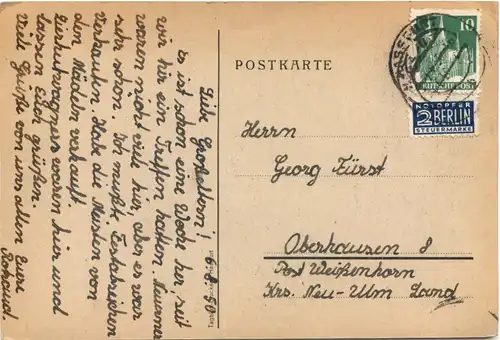 Liebe Großeltern! 6.8.50
Es ist schon eine Woche her, seit
wir hir ein Treffen hatten.
waren nicht viele hir, aber es war
sehr schön. Ich mußte Festabzeichen
Verkaufen. Habe die Meisten von
den Mädeln verkauft.
waren hir und
lassen Euch grüßen.
Viele Grüße von uns allen Eure
POSTKARTE
10
DEUTSCHE POST
NOTOPFER
2 BERLIN
STEUERMARKE
Herrn
Georg Fürst
Oberhausen 8
Post Weißenhorn
Krs. Neu-Ulm Land